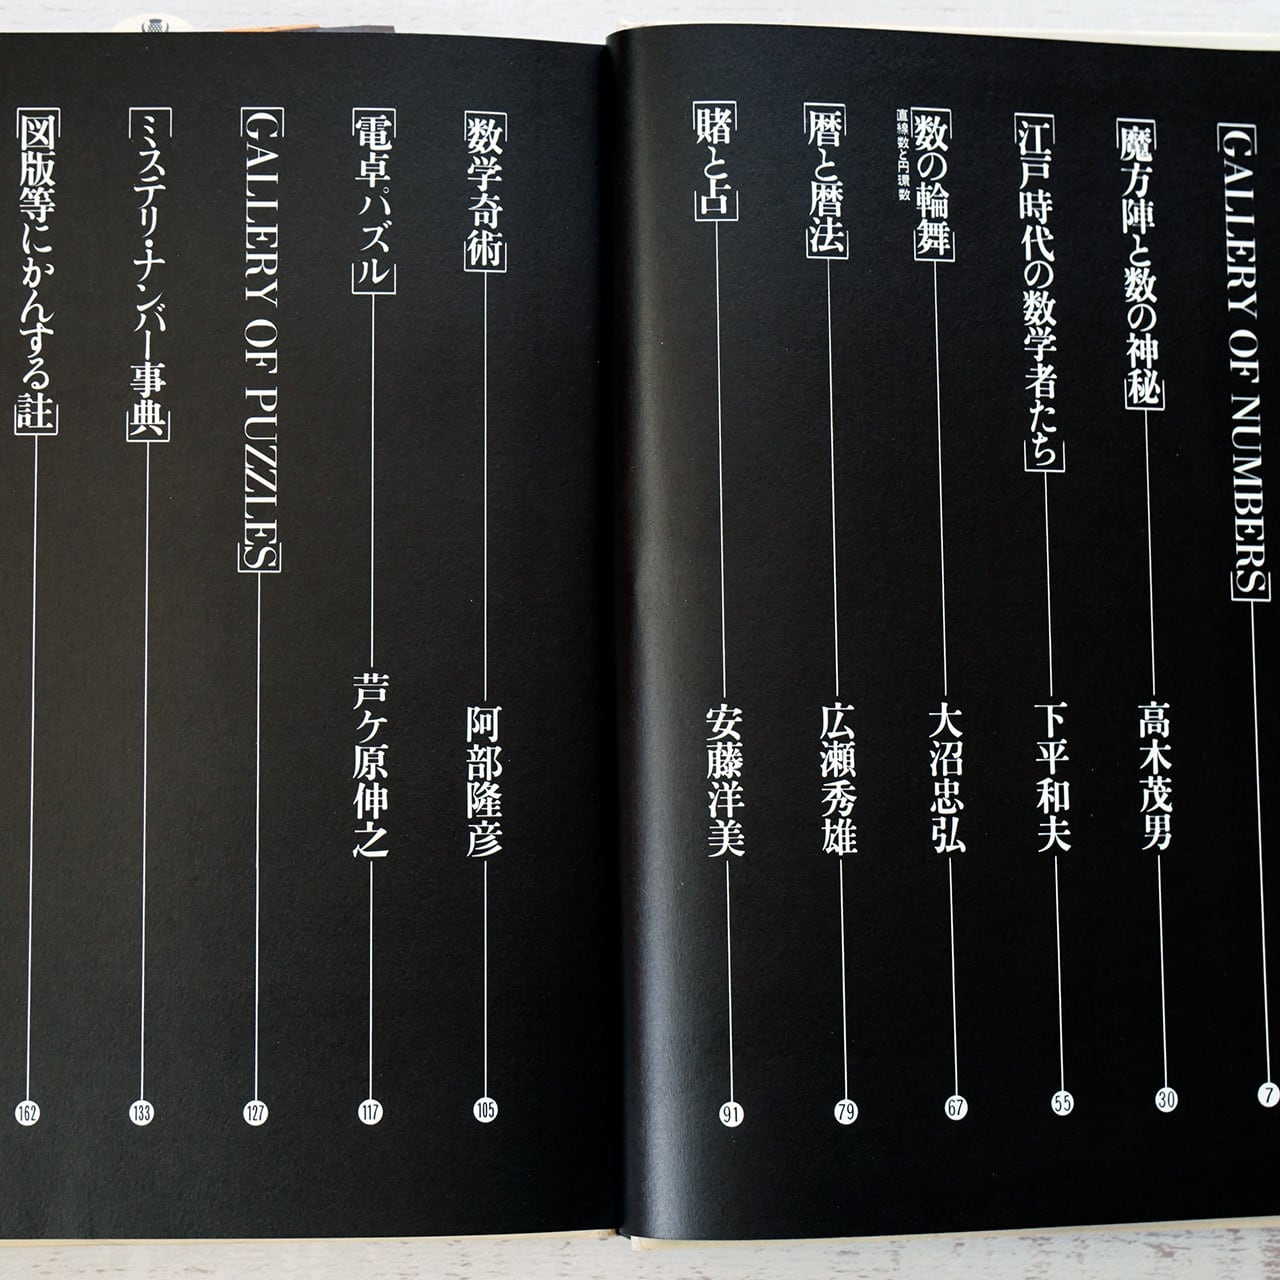 GALLERY OF NUMBERS 7
魔方陣と数の神秘 高木茂男 30
江戸時代の数学者たち 下平和夫 55
数の輪舞 大沼忠弘 67
直線数と円環数
暦と暦法 広瀬秀雄 79
賭と占 安藤洋美 91
数学奇術 阿部隆彦 105
電卓パズル 芦ケ原伸之 117
GALLERY OF PUZZLES 127
ミステリ・ナンバー事典 133
図版等にかんする註 162